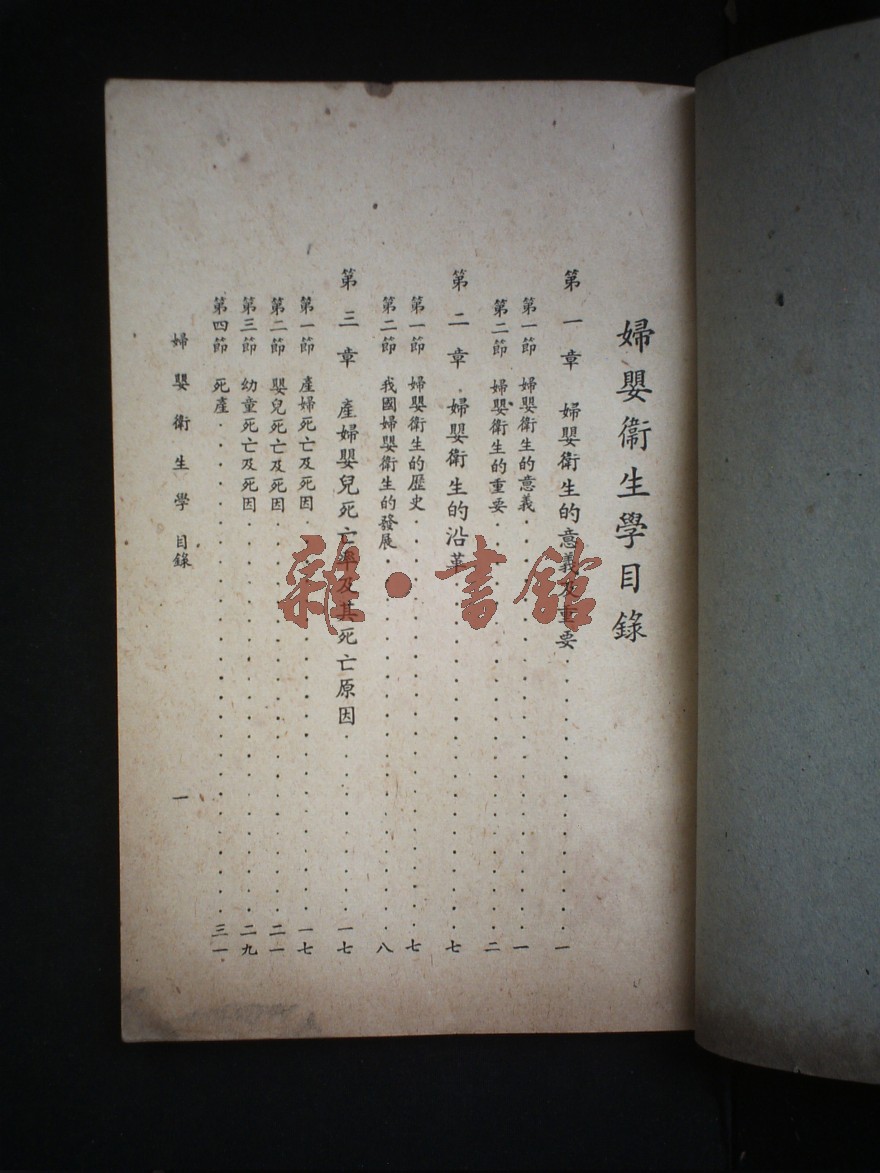 婦嬰衞生學目錄
第一章 婦嬰衞生的意義及重要......一
第一節 婦嬰衞生的意義......一
第二節 婦嬰衞生的重要......二
第二章 婦嬰衞生的沿革......七
第一節 婦嬰衞生的歷史......七
第二節 我國婦嬰衞生的發展......八
第三章 產婦嬰兒死亡率及其死亡原因......一七
第一節 產婦死亡及死因......一七
第二節 嬰兒死亡及死因......二一
第三節 幼童死亡及死因......二九
第四節 死產......三一
婦嬰衞生學 目錄
一
雜·書館